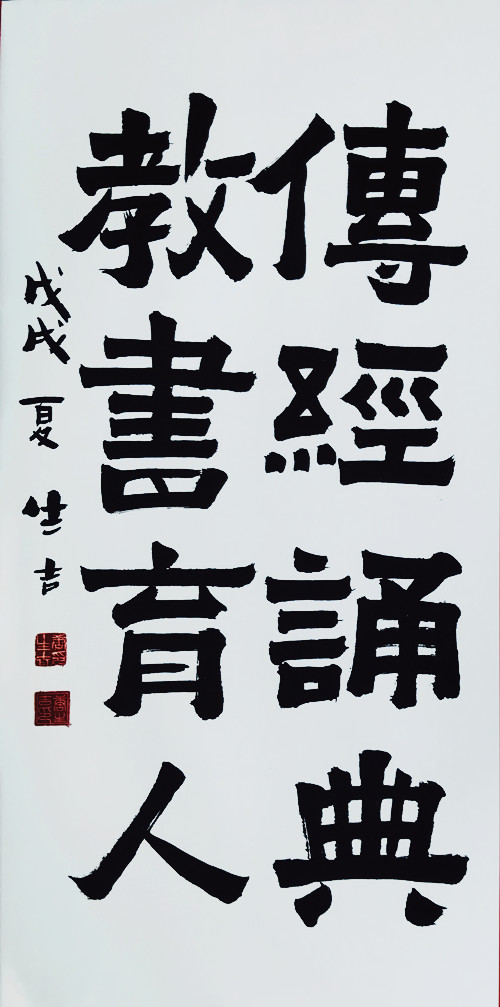 傳經誦典
教書育人
戊戌夏生吉